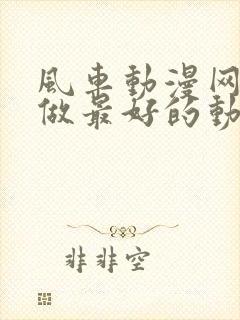 風車動漫网
做最好的動
非非空